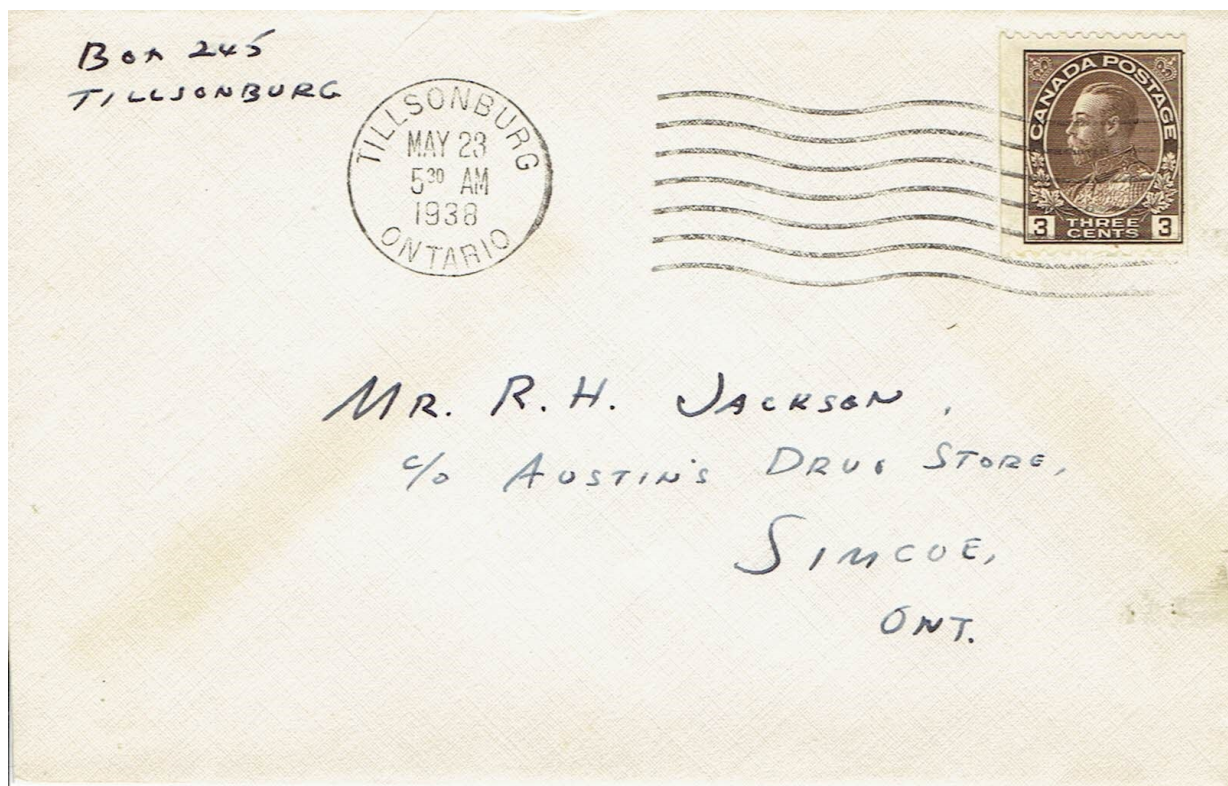 Box 245
TILLSONBURG
TILLSONBURG
MAY 23
5 30 AM
1938
ONTARIO
CANADA POSTAGE
3 THREE CENTS 3
MR. R. H. JACKSON,
c/o AUSTIN'S DRUG STORE,
SIMCOE,
ONT.